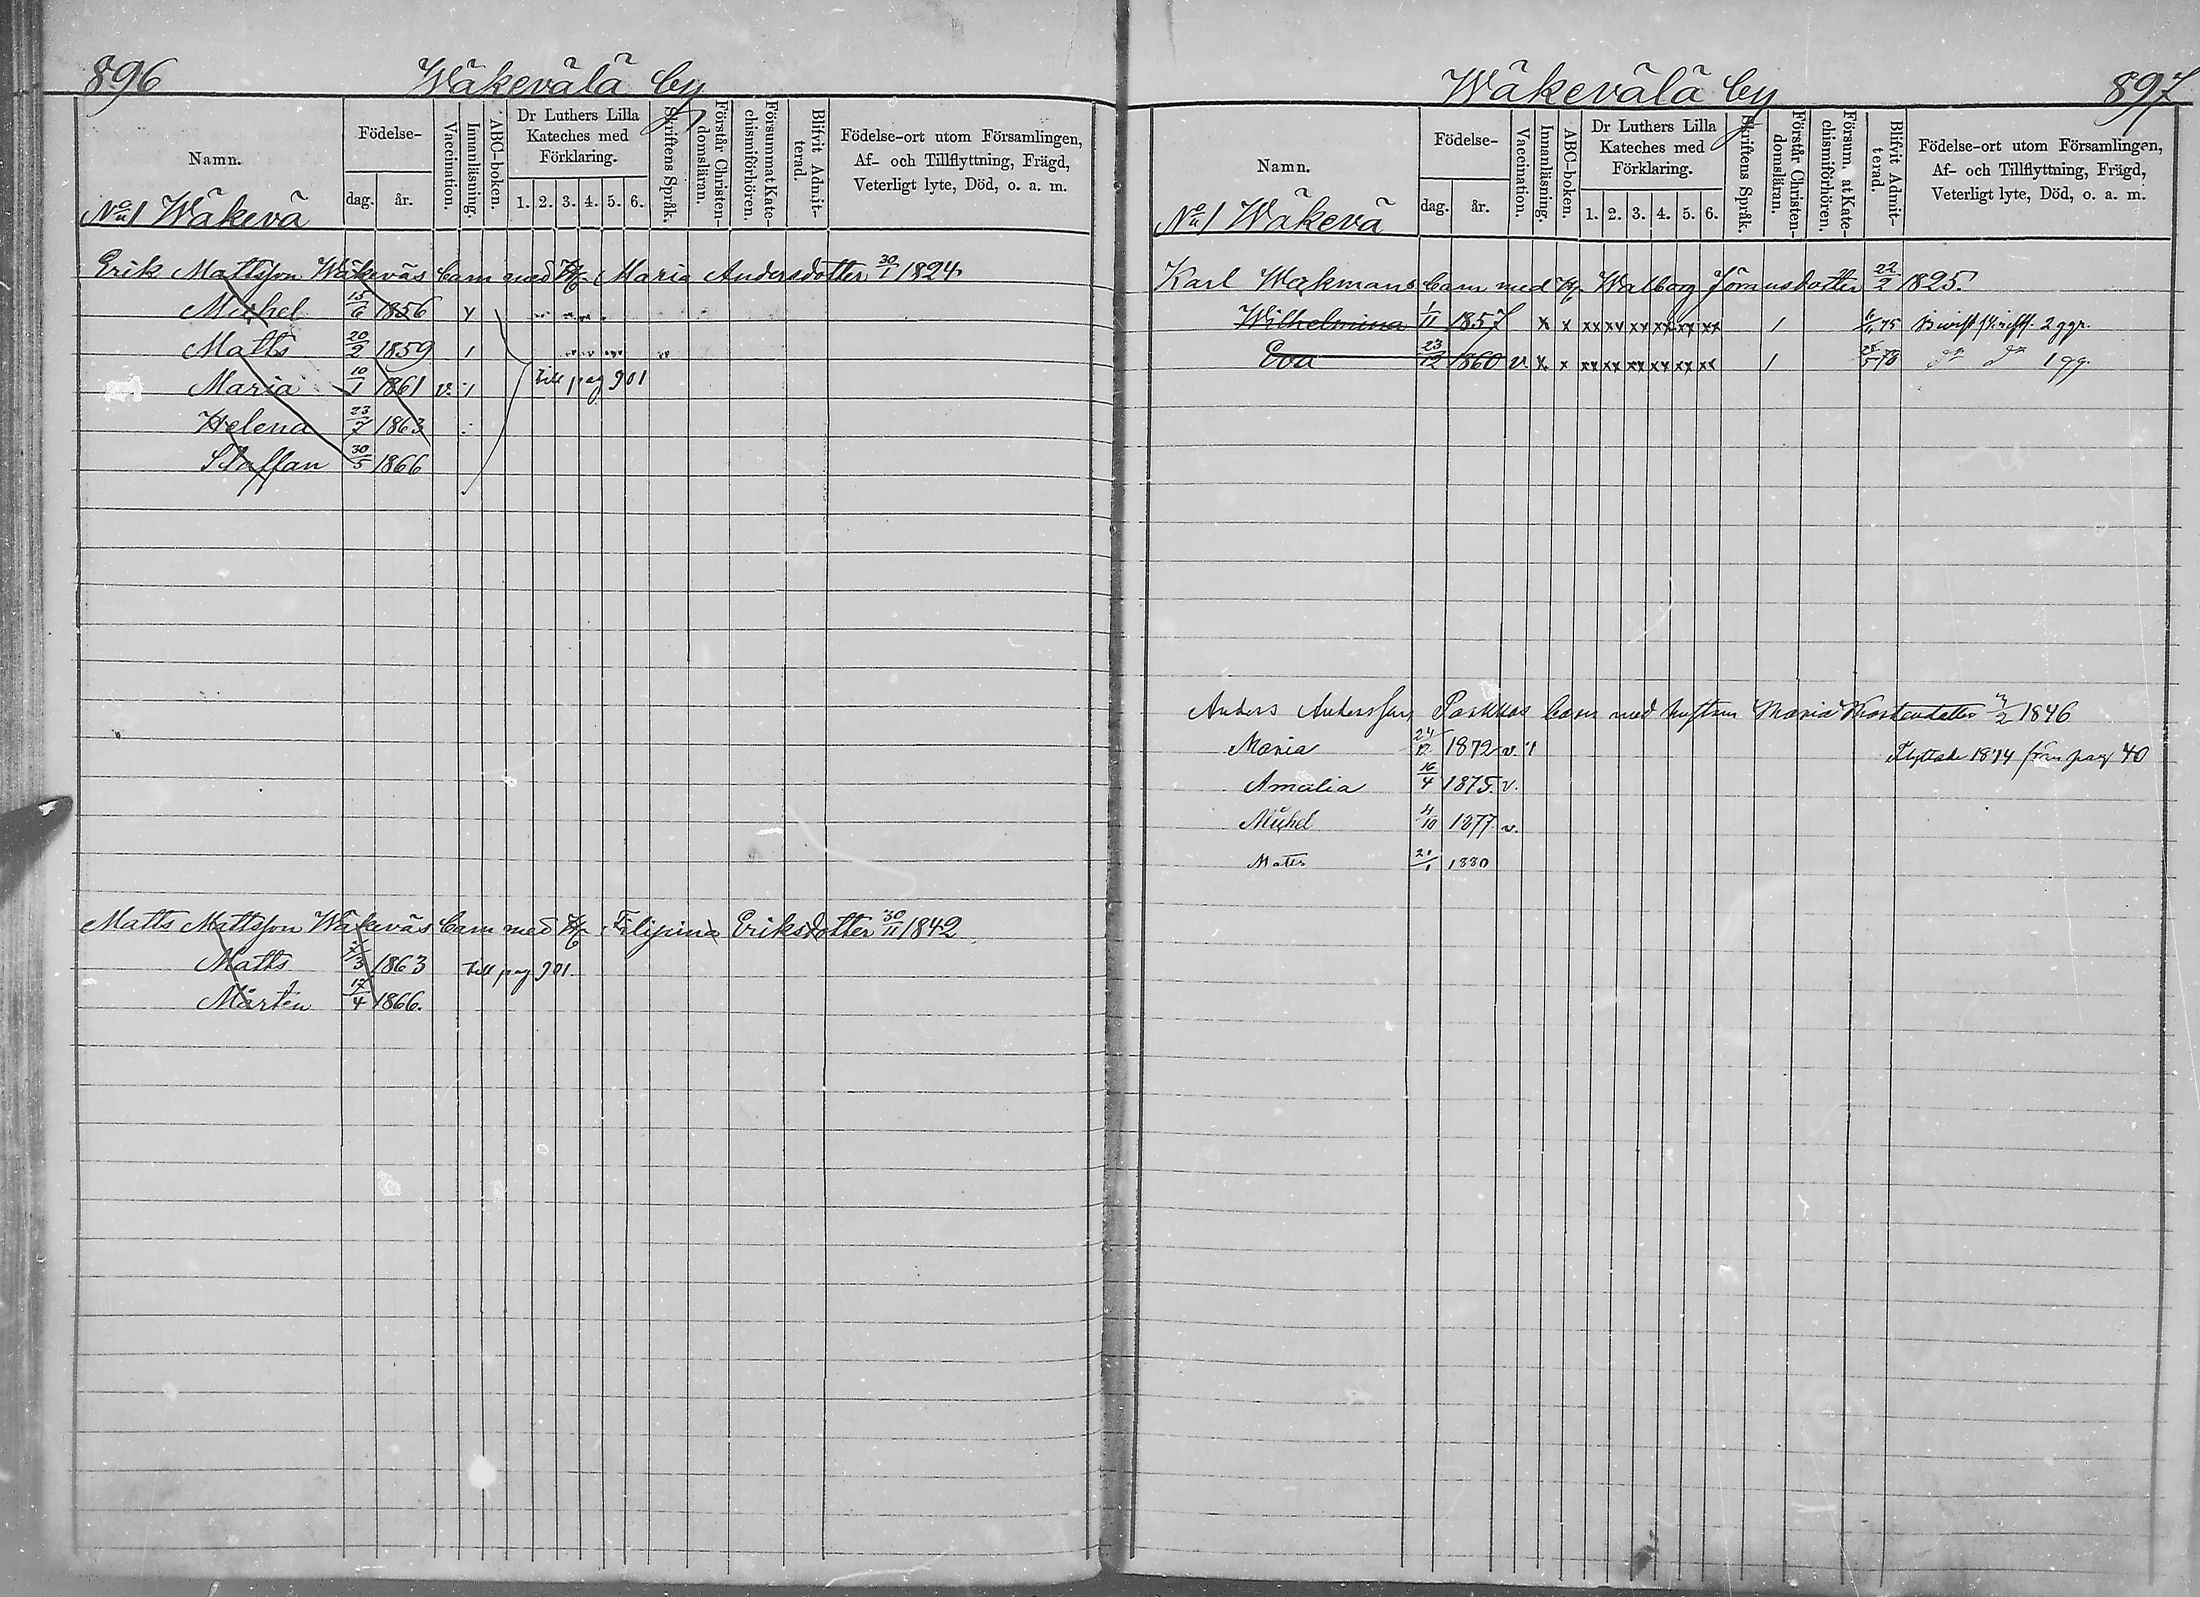 896
Wäkevälä by
Namn.
Födelse-
dag.
år.
Vaccination.
Innanläsning.
ABC-boken.
Dr Luthers Lilla
Kateches med
Förklaring.
1. 2. 3. 4. 5. 6.
Skriftens Språk.
Förstår Christen-
domsläran.
Försummat Kate-
chismiförhören.
Blifvit Admit-
terad.
Födelse-ort utom Församlingen,
Af- och Tillflyttning, Frägd,
Veterligt lyte, Död, o. a. m.
No 1 Wäkevä
Erik Mattsson Wäkeväs barn med H. Maria Andersdotter 30/1 1824
Michel 15/6 1856
Matts 20/2 1859
Maria 10/1 1861 v. till pag 901
Helena 23/7 1863
Staffan 30/5 1866
Matts Mattsson Wäkeväs barn med H. Filipina Eriksdotter 30/11 1842
Matts 1863 till pag 901.
Mårten 17/4 1866.
Wäkevälä by
897
Namn.
Födelse-
dag.
år.
Vaccination.
Innanläsning.
ABC-boken.
Dr Luthers Lilla
Kateches med
Förklaring.
1. 2. 3. 4. 5. 6.
Skriftens Språk.
Förstår Christen-
domsläran.
Försum. at Kate-
chismiförhören.
Blifvit Admit-
terad.
Födelse-ort utom Församlingen,
Af- och Tillflyttning, Frägd,
Veterligt lyte, Död, o. a. m.
No 1 Wäkevä
Karl Wäkmans barn med H. Walborg Jöransdotter 22/2 1825.
Wilhelmina 1/11 1857 x x xx xx xx xx xx xx 1 75 2 ggr.
Eva 23/12 1860 v. x x xx xx xx xx xx xx 1 78 do do 1 gg.
Anders Andersson barn med hustrun Maria 1846
Maria 24/12 1872 v. Flyttade 1874 från pag 40
Amalia 16/4 1875. v.
Michel 1877 v.
Matts 1880